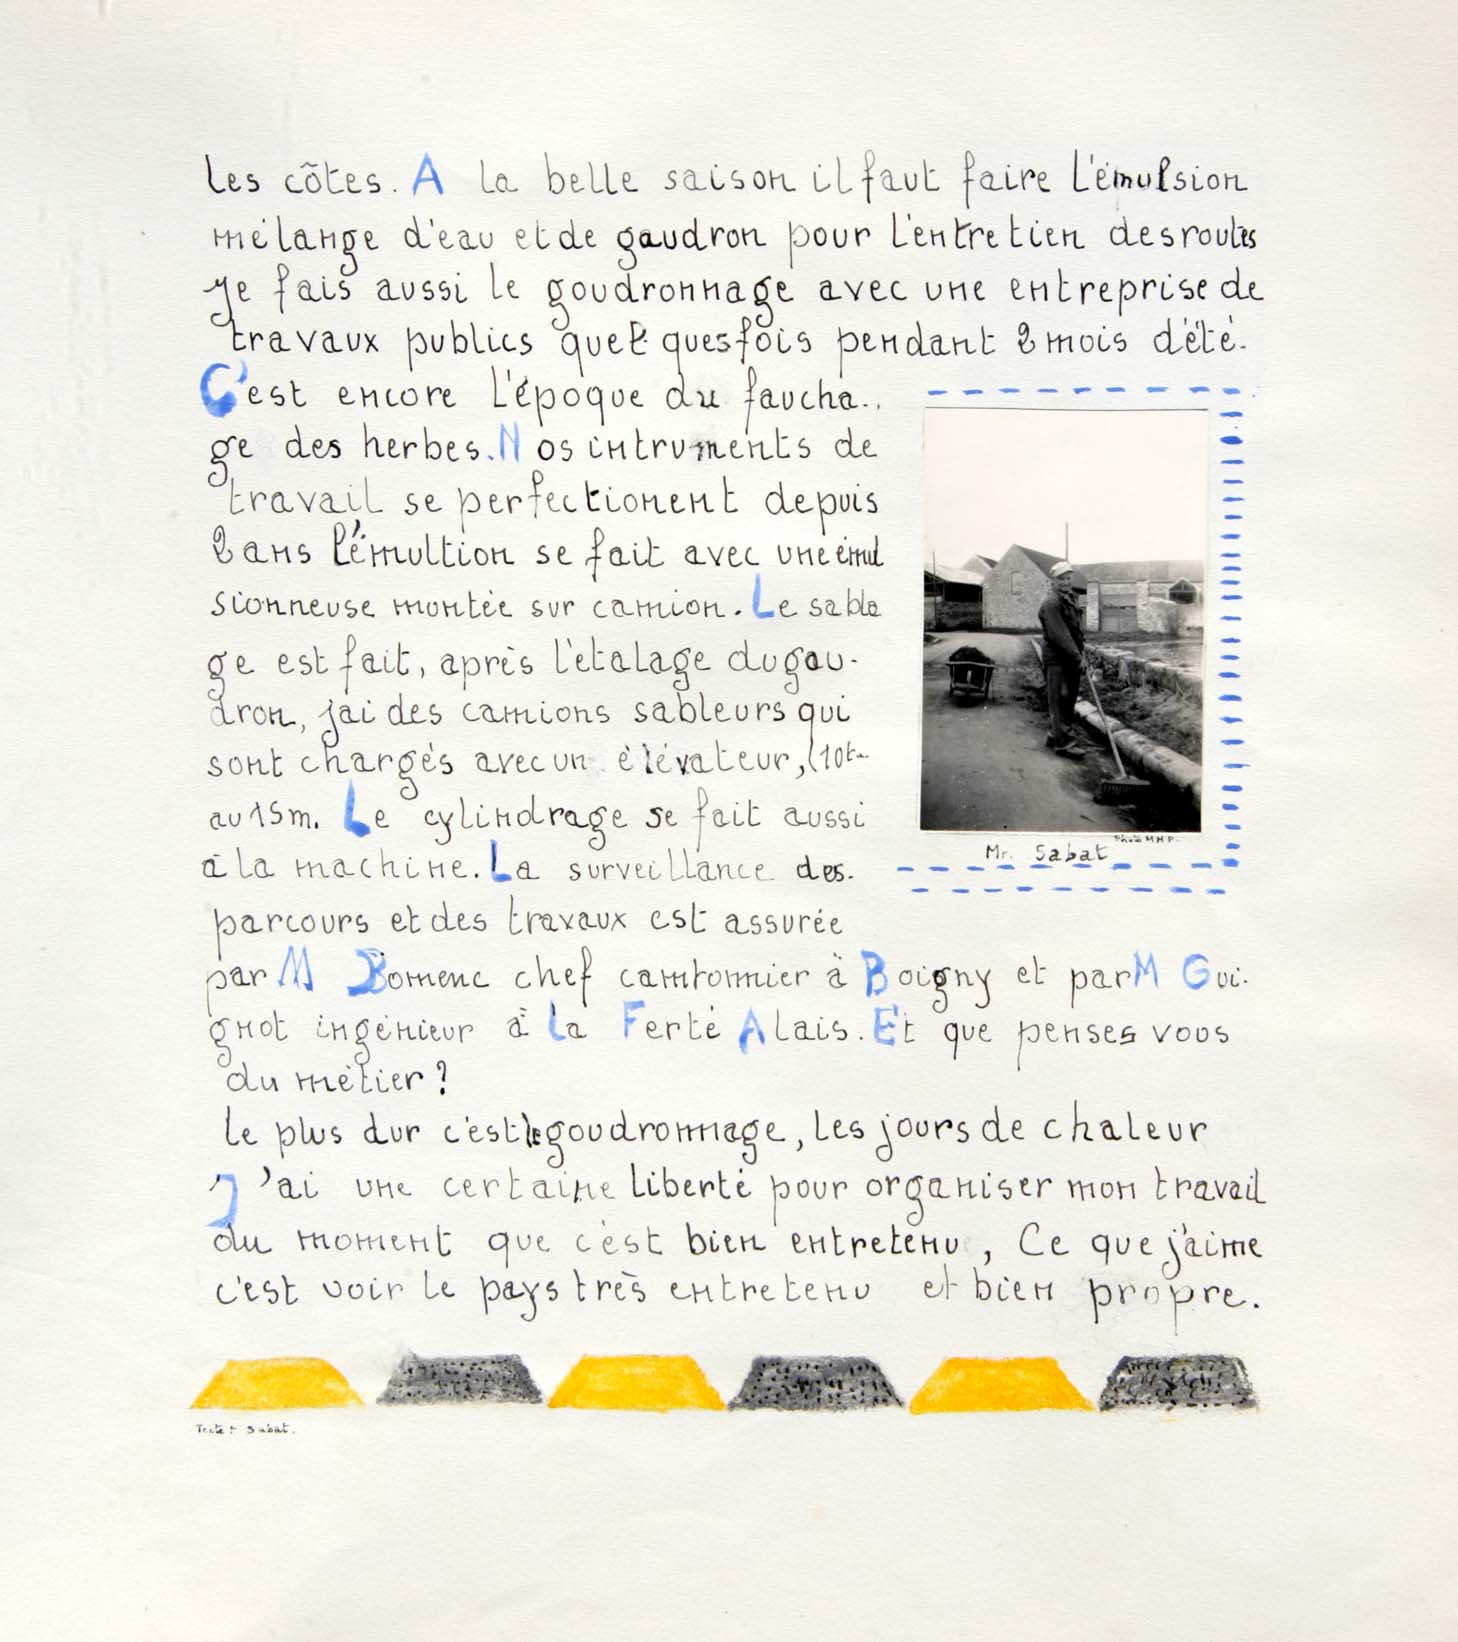 les côtes. A la belle saison il faut faire l'émulsion
mélange d'eau et de gaudron pour l'entretien des routes
Je fais aussi le goudronnage avec une entreprise de
travaux publics quel quesfois pendant 2 mois d'été.
C'est encore l'époque du faucha..
ge des herbes. Nos intruments de
travail se perfectionent depuis
2 ans l'émultion se fait avec une émul
sionneuse montée sur camion. Le sabla
ge est fait, après l'etalage du gou-
dron, j'ai des camions sableurs qui
sont chargés avec un élévateur, (10t
au 15m. Le cylindrage se fait aussi
à la machine. La surveillance des.
parcours et des travaux est assurée
par M Bomenc chef cantonnier à Boigny et par M Gui-
gnot ingénieur à La Ferté Alais. Et que penses vous
du métier?
Le plus dur c'est le goudronnage, les jours de chaleur
J'ai une certaine liberté pour organiser mon travail
du moment que c'est bien entretenu, Ce que j'aime
c'est voir le pays très entretenu et bien propre.
Photo M H P.
Mr. Sabat
Texte M Sabat.